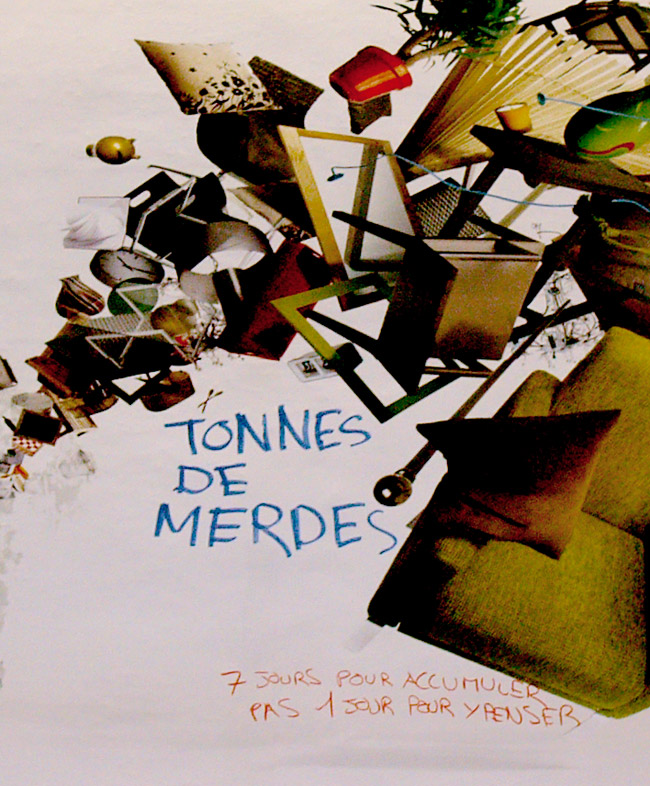 TONNES
DE
MERDES
7 JOURS POUR ACCUMULER
PAS 1 JOUR POUR Y PENSER